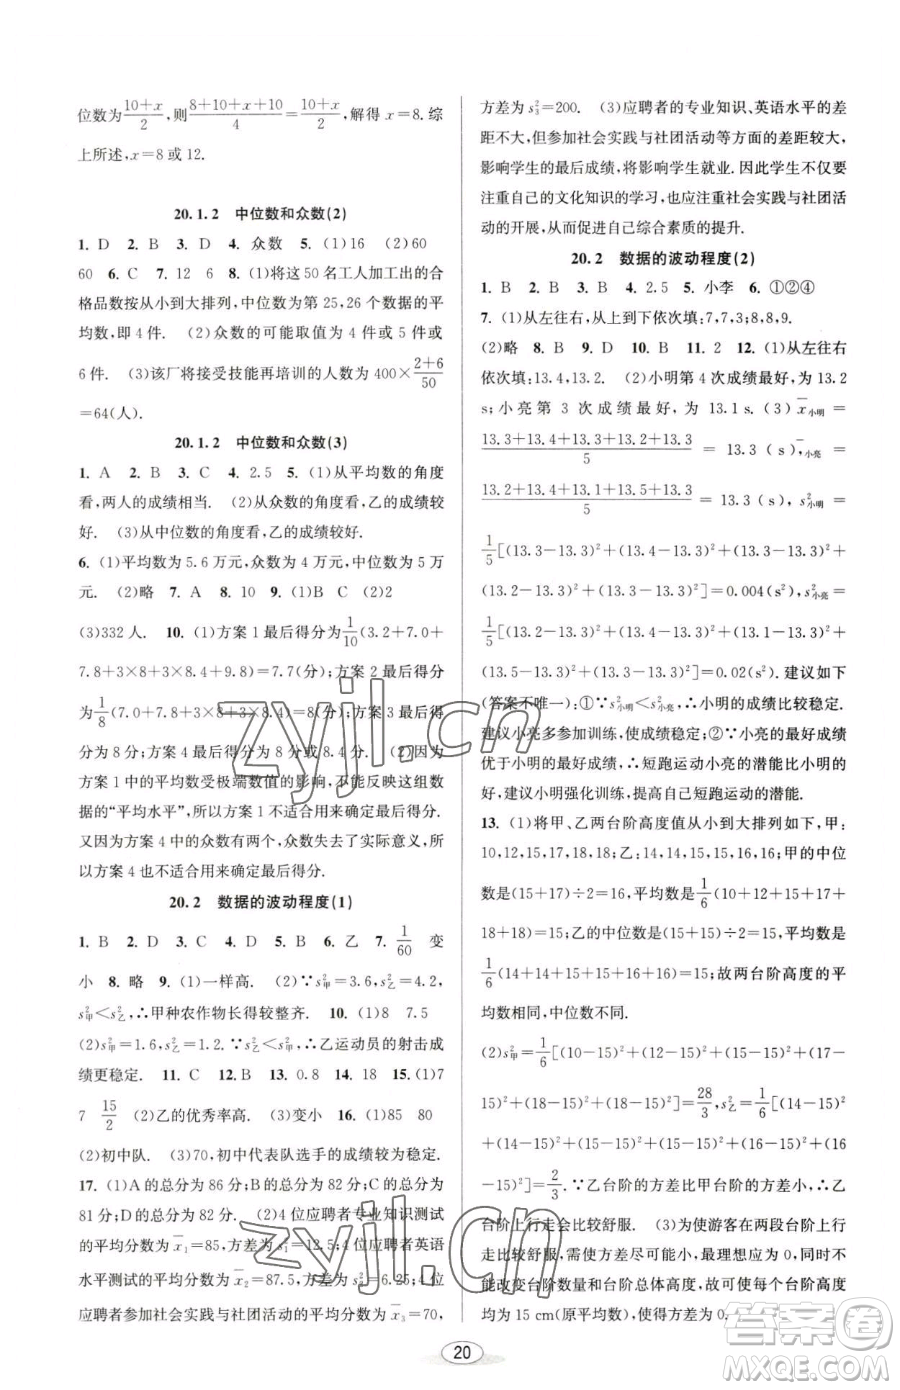 位数为(10+x)/2, 则(8+10+x+10)/4=(10+x)/2, 解得 x=8. 综
上所述, x=8 或 12.
20.1.2 中位数和众数(2)
1. D 2. B 3. D 4. 众数 5. (1)16 (2)60
60 6. C 7. 12 6 8. (1)将这 50 名工人加工出的合
格品数按从小到大排列, 中位数为第 25,26 个数据的平
均数, 即 4 件. (2)众数的可能取值为 4 件或 5 件或
6 件. (3)该厂将接受技能再培训的人数为 400×(2+6)/50
=64(人).
20.1.2 中位数和众数(3)
1. A 2. B 3. C 4. 2.5 5. (1)从平均数的角度
看, 两人的成绩相当. (2)从众数的角度看, 乙的成绩较
好. (3)从中位数的角度看, 乙的成绩较好.
6. (1)平均数为 5.6 万元, 众数为 4 万元, 中位数为 5 万
元. (2)略 7. A 8. 10 9. (1)B (2)2
(3)332 人. 10. (1)方案 1 最后得分为1/10(3.2+7.0+
7.8+3×8+3×8.4+9.8)=7.7(分); 方案 2 最后得分
为1/8(7.0+7.8+3×8+3×8.4)=8(分); 方案 3 最后得
分为 8 分; 方案 4 最后得分为 8 分或 8.4 分. (2)因为
方案 1 中的平均数受极端数值的影响, 不能反映这组数
据的“平均水平”, 所以方案 1 不适合用来确定最后得分.
又因为方案 4 中的众数有两个, 众数失去了实际意义, 所
以方案 4 也不适合用来确定最后得分.
20.2 数据的波动程度(1)
1. B 2. D 3. C 4. D 5. B 6. 乙 7. 1/60 变
小 8. 略 9. (1)一样高. (2)∵s²甲=3.6, s²乙=4.2,
s²甲<s²乙, ∴甲种农作物长得较整齐. 10. (1)8 7.5
(2)s²甲=1.6, s²乙=1.2. ∵s²乙<s²甲, ∴乙运动员的射击成
绩更稳定. 11. C 12. B 13. 0.8 14. 18 15. (1)7
7 15/2 (2)乙的优秀率高. (3)变小 16. (1)85 80
(2)初中队. (3)70, 初中代表队选手的成绩较为稳定.
17. (1)A 的总分为 86 分; B 的总分为 82 分; C 的总分为
81 分; D 的总分为 82 分. (2)4 位应聘者专业知识测试
的平均分数为 x̄₁=85, 方差为 s²₁=12.5; 4 位应聘者英语
水平测试的平均分数为 x̄₂=87.5, 方差为 s²₂=6.25; 4 位
应聘者参加社会实践与社团活动的平均分数为 x̄₃=70,
方差为 s²₃=200. (3)应聘者的专业知识、英语水平的差
距不大, 但参加社会实践与社团活动等方面的差距较大,
影响学生的最后成绩, 影响学生就业. 因此学生不仅要
注重自己的文化知识的学习, 也应注重社会实践与社团活
动的开展, 从而促进自己综合素质的提升.
20.2 数据的波动程度(2)
1. B 2. B 3. B 4. 2.5 5. 小李 6. ①②④
7. (1)从左往右, 从上到下依次填: 7,7,3; 8,8,9.
(2)略 8. B 9. D 10. B 11. 2 12. (1)从左往右
依次填: 13.4, 13.2. (2)小明第 4 次成绩最好, 为 13.2
s; 小亮第 3 次成绩最好, 为 13.1 s. (3) x̄小明 =
(13.3+13.4+13.3+13.2+13.3)/5 = 13.3 (s), x̄小亮 =
(13.2+13.4+13.1+13.5+13.3)/5 = 13.3 (s), s²小明 =
1/5[(13.3-13.3)²+(13.4-13.3)²+(13.3-13.3)²+
(13.2-13.3)²+(13.3-13.3)²]=0.004(s²), s²小亮 =
1/5[(13.2-13.3)²+(13.4-13.3)²+(13.1-13.3)²+
(13.5-13.3)²+(13.3-13.3)²]=0.02(s²). 建议如下
(答案不唯一): ①∵s²小明<s²小亮, ∴小明的成绩比较稳定.
建议小亮多参加训练, 使成绩稳定; ②∵小亮的最好成绩
优于小明的最好成绩, ∴短跑运动小亮的潜能比小明的
好, 建议小明强化训练, 提高自己短跑运动的潜能.
13. (1)将甲、乙两台阶高度值从小到大排列如下, 甲:
10,12,15,17,18,18; 乙: 14,14,15,15,16,16; 甲的中位
数是(15+17)÷2=16, 平均数是1/6(10+12+15+17+
18+18)=15; 乙的中位数是(15+15)÷2=15, 平均数是
1/6(14+14+15+15+16+16)=15; 故两台阶高度的平
均数相同, 中位数不同.
(2)s²甲=1/6[(10-15)²+(12-15)²+(15-15)²+(17-
15)²+(18-15)²+(18-15)²]=28/3, s²乙=1/6[(14-15)²
+(14-15)²+(15-15)²+(15-15)²+(16-15)²+(16
-15)²]=2/3. ∵乙台阶的方差比甲台阶的方差小, ∴乙
台阶上行走会比较舒服. (3)为使游客在两段台阶上行
走比较舒服, 需使方差尽可能小, 最理想应为 0, 同时不
能改变台阶数量和台阶总体高度, 故可使每个台阶高度
均为 15 cm(原平均数), 使得方差为 0.
20
zyjl.cn
zyjl.cn
答案圈
MXQE.COM